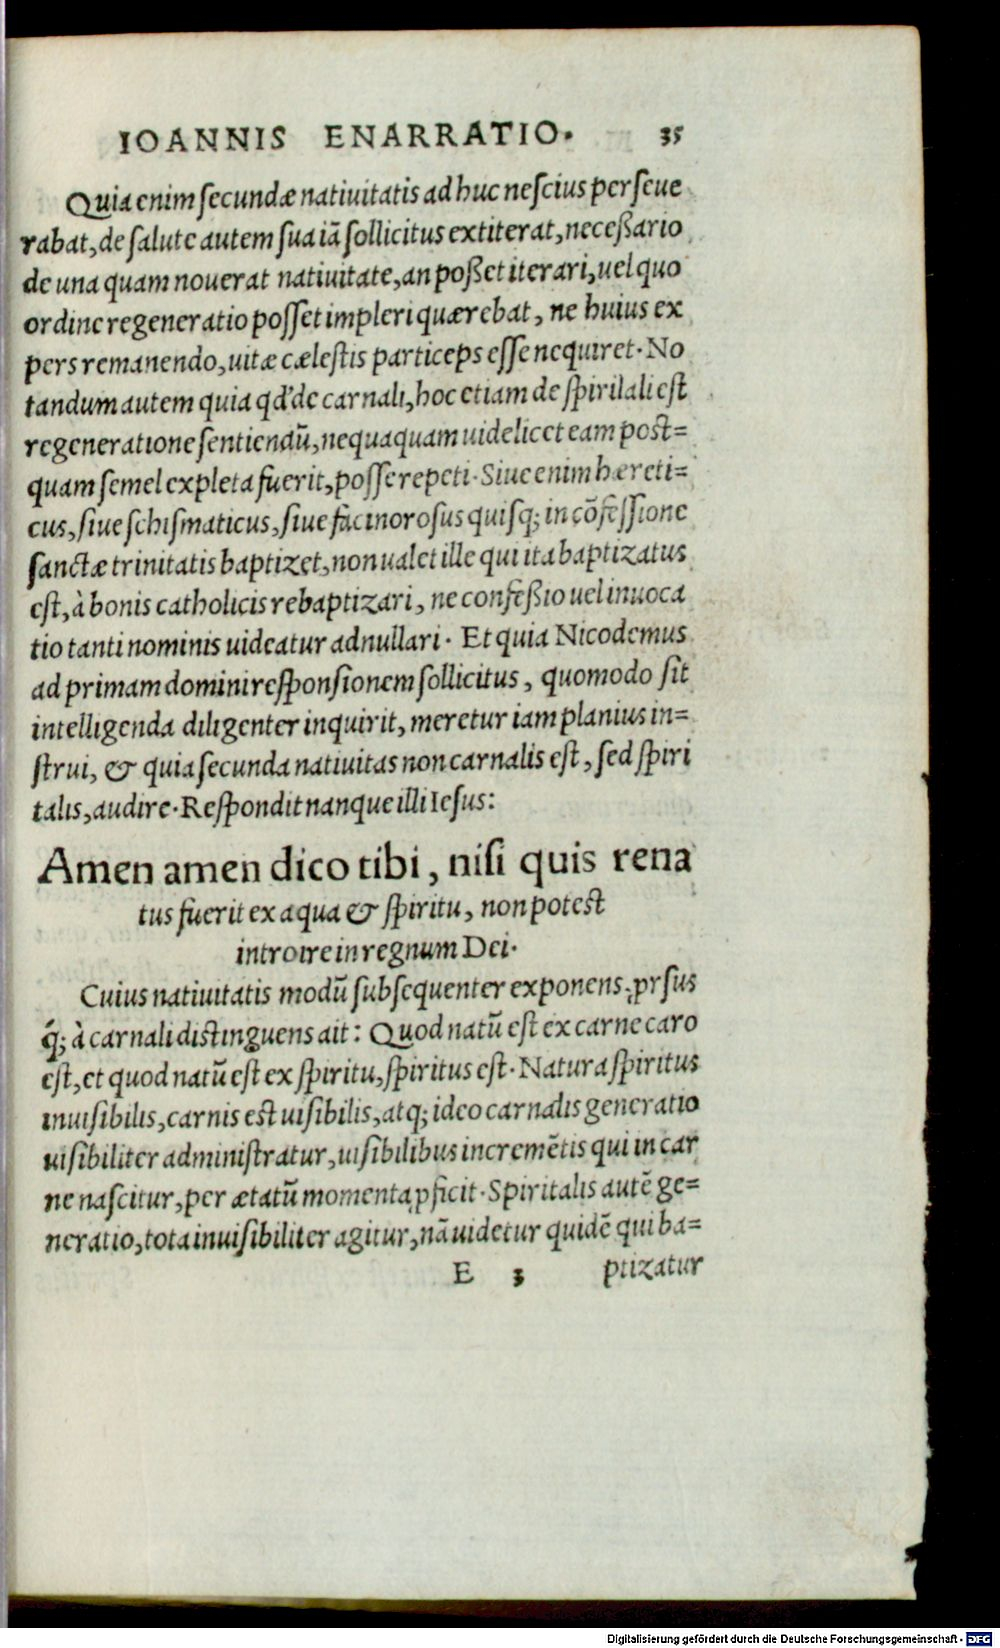 IOANNIS ENARRATIO. 35
Quia enim secundæ natiuitatis ad huc nescius perseue
rabat, de salute autem sua iã sollicitus extiterat, neceßario
de una quam nouerat natiuitate, an poßet iterari, uel quo
ordine regeneratio posset impleri quærebat, ne huius ex
pers remanendo, uitæ cælestis particeps esse nequiret. No
tandum autem quia qd' de carnali, hoc etiam de spiritali est
regeneratione sentiendũ, nequaquam uidelicet eam post=
quam semel expleta fuerit, posse repeti. Siue enim hæreti=
cus, siue schismaticus, siue facinorosus quisq; in cõfessione
sanctæ trinitatis baptizet, non ualet ille qui ita baptizatus
est, à bonis catholicis rebaptizari, ne confeßio uel inuoca
tio tanti nominis uideatur adnullari. Et quia Nicodemus
ad primam domini responsionem sollicitus, quomodo sit
intelligenda diligenter inquirit, meretur iam planius in=
strui, & quia secunda natiuitas non carnalis est, sed spiri
talis, audire. Respondit nanque illi Iesus:
Amen amen dico tibi, nisi quis rena
tus fuerit ex aqua & spiritu, non potest
introire in regnum Dei.
Cuius natiuitatis modũ subsequenter exponens, prsus
q́; à carnali distinguens ait: Quod natũ est ex carne caro
est, et quod natũ est ex spiritu, spiritus est. Natura spiritus
inuisibilis, carnis est uisibilis, atq; ideo carnalis generatio
uisibiliter administratur, uisibilibus incremẽtis qui in car
ne nascitur, per ætatũ momenta ꝓficit. Spiritalis autẽ ge=
neratio, tota inuisibiliter agitur, nã uidetur quidẽ qui ba=
E 3 ptizatur
Digitalisierung gefördert durch die Deutsche Forschungsgemeinschaft - DFG